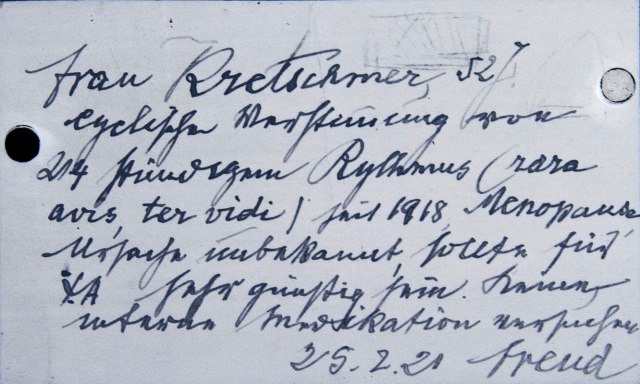 Frau Kretschmer, 52 J.
cyclische Verstimmung von
24 stündigem Rythmus (rara
avis, ter vidi) seit 1918 Menopause
Ursache unbekannt, sollte für
ΨA sehr günstig sein. Keine
interne Medikation versuchen
25.2.21 Freud